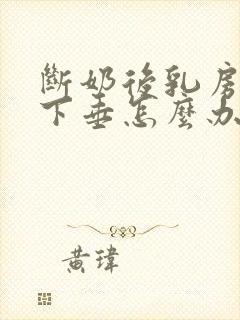 斷奶後乳房
下垂怎麼办
黃瑋